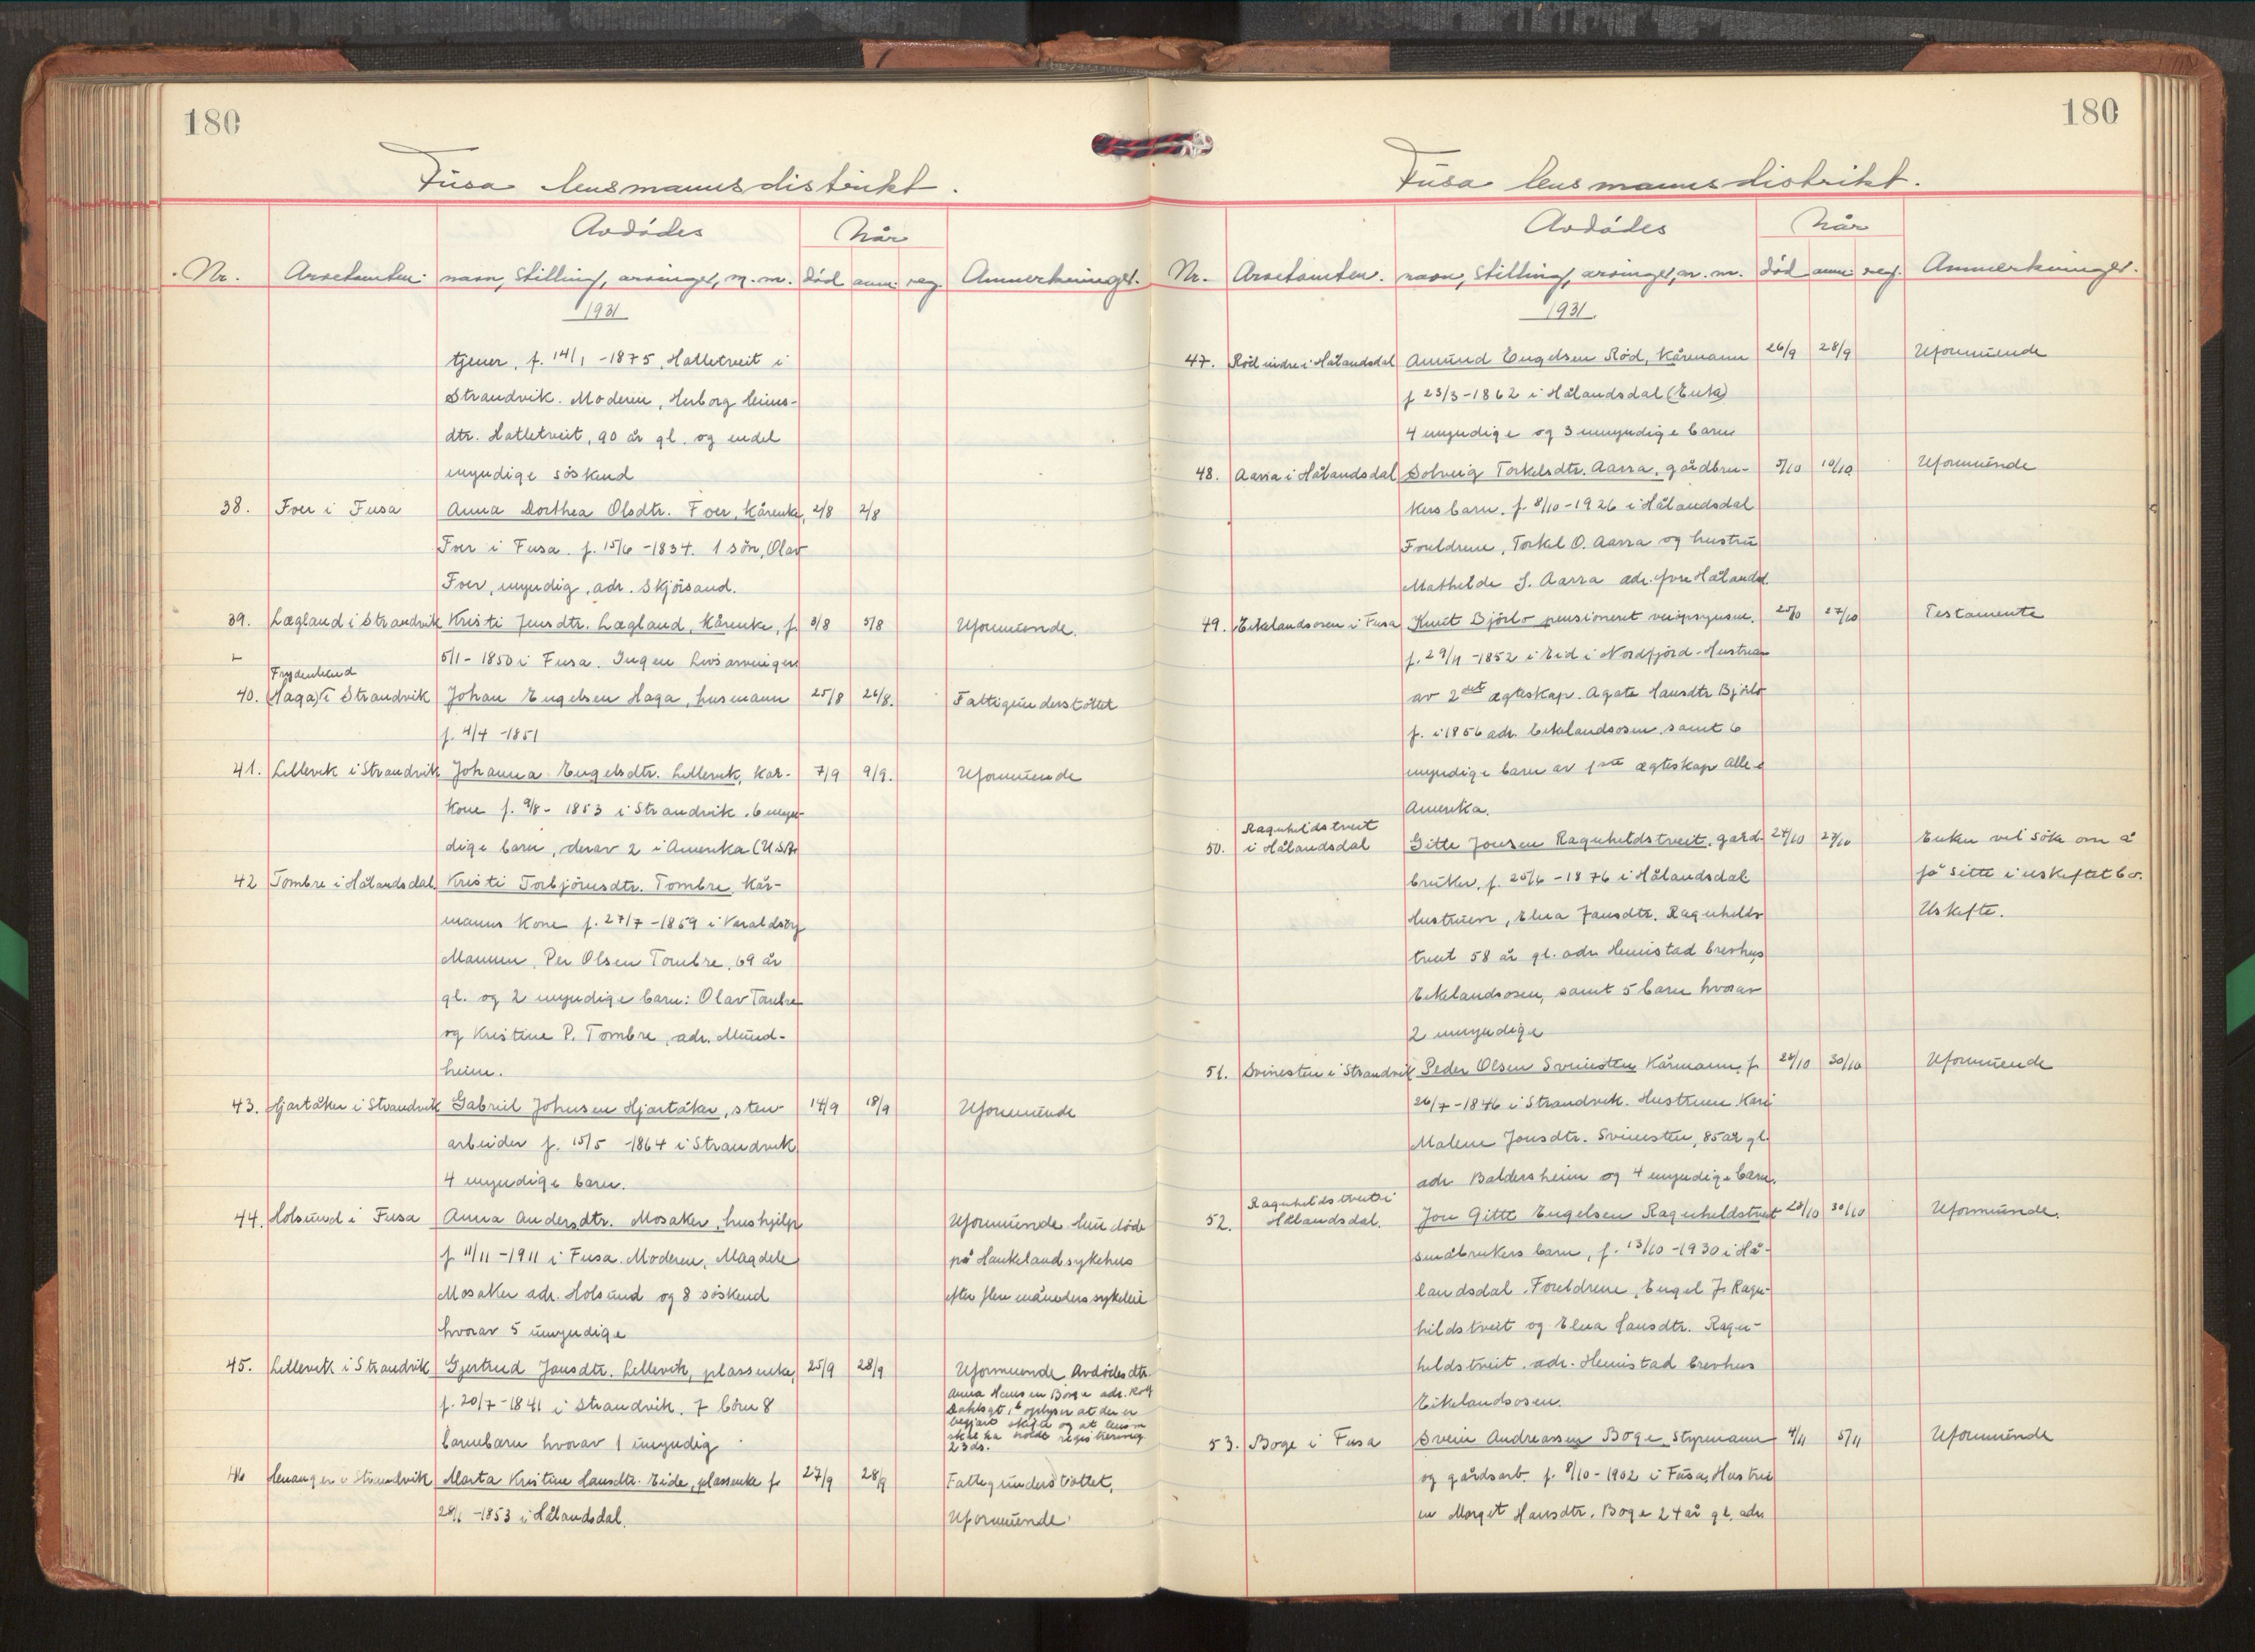 180
Fusa lensmannsdistrikt.
Avdödes
Når
Nr. Arvetomten. navn, stilling, arvinger, m.m. död anm: reg. Anmerkninger.
1931
tjener, f. 14/1 -1875, Hatletveit i
Strandvik. Moderen, Herborg
dtr. Hatletveit, 90 år gl. og endel
myndige söskend
38. Foer i Fusa Anna Dorthea Olsdtr. Foer, kårenke, 2/8 2/8
Foer i Fusa. f. 15/6 -1834. 1 sön, Olav
Foer, myndig, adr. Skjörsand.
39. Lægland i Strandvik Kristi Jensdtr. Lægland, kårenke, f. 3/8 5/8 Uformuende.
5/1- 1850 i Fusa. Ingen livsarvinger
Frydenlund
40. (Haga) i Strandvik Johan Engelsen Haga, husmann 25/8 26/8. Fattigunderstöttet
f. 4/4 -1851
41. Lillevik i Strandvik Johanna Engelsdtr. Lillevik, kår- 7/9 9/9. Uformuende
kone f. 9/8- 1853 i Strandvik. 6 myn-
dige barn, derav 2 i Amerika (U.S.A.
42 Tombre i Hålandsdal. Kristi Torbjörnsdtr. Tombre, kår-
manns kone f. 27/7 -1859 i Varaldsöy
Mannen, Per Olsen Tombre, 69 år
gl. og 2 myndige barn: Olav Tombre
og Kristine P. Tombre, adr. Mund-
heim.
43. Hjartåker i Strandvik Gabriel Johnsen Hjartåker, sten- 14/9 18/9 Uformuende
arbeider f. 15/5 -1864 i Strandvik
4 myndige barn.
44. Holsund i Fusa Anna Andersdtr. Mosaker, hushjelp Uformuende hun döde
f 11/11 -1911 i Fusa. Moderen, Magdele på Haukeland sykehus
Mosaker adr. Holsund og 8 söskend efter flere måneders sykeleie
hvorav 5 umyndige
45. Lillevik i Strandvik Gjertrud Jansdtr. Lillevik, plassenke, 25/9 28/9 Uformuende. Avdödes dtr.
f. 20/7 -1841 i Strandvik. 7 börn 8 Anna Hansen Börge adr. Rolf
Dahlsgt. 6 oplyser at der er
barnebarn hvorav 1 umyndig begjært skifte og at lensm
skal ha holdt registrering
23 ds.
46 Henanger i Strandvik Marta Kristine Hansdtr. Eide, plassenke f. 27/9 28/9 Fattigunderstöttet,
28/1 -1853 i Hålandsdal. Uformuende.
180
Fusa lensmannsdistrikt.
Avdödes
Når
Nr. Arvetomten. navn, stilling, arvinger, m.m. död anm: reg. Anmerkninger.
1931.
47. Röd indre i Hålandsdal Amund Engelsen Röd, kårmann 26/9 28/9 Uformuende
f 23/3 -1862 i Hålandsdal (Enke)
4 myndige og 3 umyndige barn
48. Aarra i Hålandsdal Solveig Torkelsdtr. Aarra, gårdbru- 3/10 10/10 Uformuende
kers barn. f. 8/10 -1926 i Hålandsdal
Foreldrene, Torkel O. Aarra og hustru
Mathilde S. Aarra adr. övre Hålandsd.
49. Eikelandsosen i Fusa Knut Björlo pensioneret veiopsynsm. 25/10 27/10 Testamente
f. 29/11 -1852 i Eid i Nordfjord. Hustruen
av 2det ægteskap. Agate Hansdtr Björlo
f. i 1856 adr. Eikelandsosen, samt 6
myndige barn av 1ste ægteskap alle i
Amerika.
Ragnhildstveit
50. i Hålandsdal Gitle Jonsen Ragnhildstveit, gård- 24/10 27/10 Enken vil söke om å
bruker, f. 25/6 -1876 i Hålandsdal få sitte i uskiftet bo.
Hustruen, Elna Jansdtr. Ragnhilds- Uskifte.
tveit 58 år gl. adr. Heimstad brevhus
Eikelandsosen, samt 5 barn hvorav
2 umyndige
51. Svinesten i Strandvik Peder Olsen Svinesten kårmann, f. 26/10 30/10 Uformuende
26/7 -1846 i Strandvik. Hustruen Kari
Malene Jonsdtr. Svinesten, 85 år gl.
adr. Baldersheim og 4 myndige barn.
Ragnhildstveit i
52. Hålandsdal. Jon Gitle Engelsen Ragnhildstveit 28/10 30/10 Uformuende.
småbrukers barn, f. 13/10 -1930 i Hå-
landsdal. Foreldrene, Engel J. Ragn-
hildstveit og Elna Hansdtr. Ragn-
hildstveit. adr. Heimstad brevhus
Eikelandsosen.
53. Boge i Fusa Svein Andreassen Boge, styrmann 4/11 5/11 Uformuende
og gårdsarb. f. 8/10 -1902 i Fusa, Hustru
en Marget Hansdtr. Boge 24 år gl. adr.